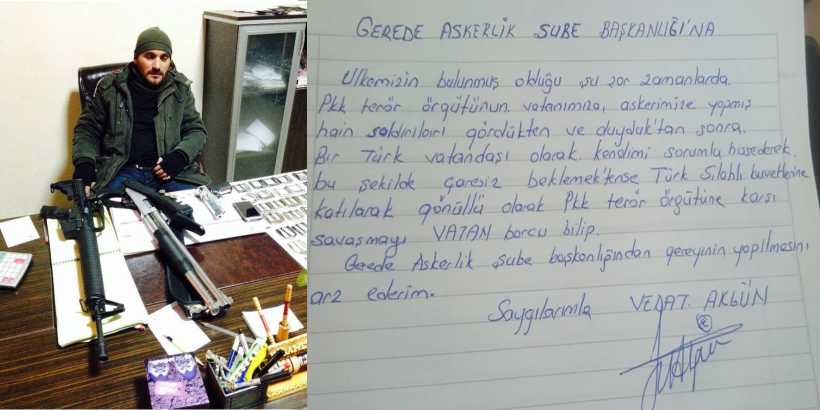 GEREDE ASKERLİK ŞUBE BAŞKANLIĞI'NA
Ülkemizin bulunmuş olduğu şu zor zamanlarda
Pkk terör örgütünün vatanımıza, askerimize yapmış
hain saldırıları gördükten ve duyduk'tan sonra.
Bir Türk vatandaşı olarak kendimi sorumlu hasederek
bu şekilde çaresiz beklemek'tense Türk Silahlı kuvvetlerine
katılarak gönüllü olarak Pkk terör örgütüne karşı
savaşmayı VATAN borcu bilip.
Gerede Askerlik şube başkanlığından gereyinin yapılmasını
arz ederim.
Saygılarımla VEDAT AKGÜN